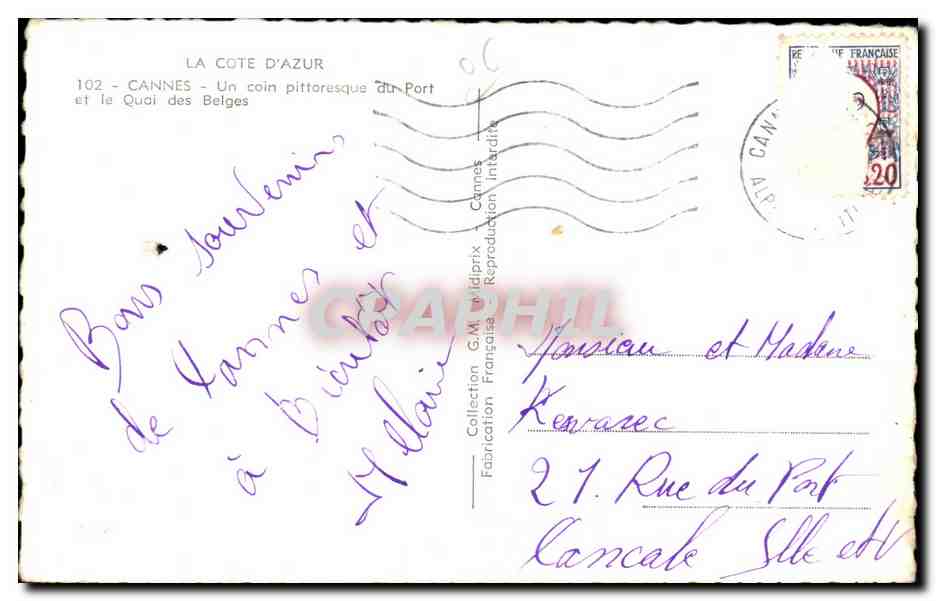 LA COTE D'AZUR
102 - CANNES - Un coin pittoresque du Port
et le Quai des Belges
Bons souvenirs
de Cannes et
à bientôt
Collection G.M. Midiprix - Cannes
Fabrication Française - Reproduction Interdite
CPAPHIL
FRANÇAISE
0,20
CANN
ALP
Monsieur et Madame
Kervarec
21. Rue du Port
Cancale Ille et V